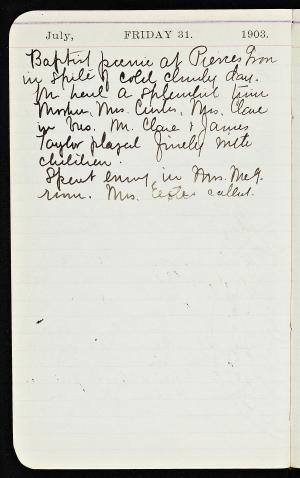 July, FRIDAY 31. 1903.
Baptist picnic at Pierces
in spite of cold cloudy day.
had a splendid time
Mother, Mrs. Curtis, Mrs. Clare
in bus. M. Clare & James
Taylor played finely with
children.
Spent in Mrs. McG.
room. Mrs. called.